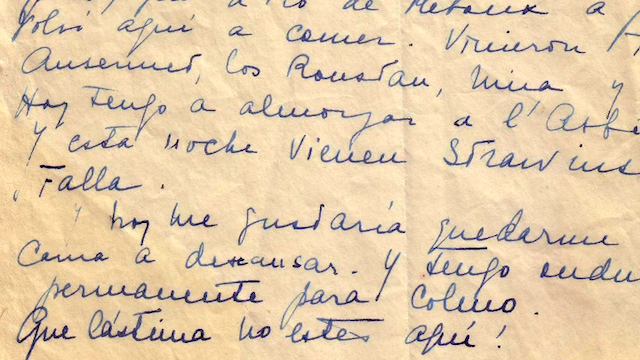 de Reboux a
Volvi aqui a comer. Vinieron
Ansermet, los Roussan, Nina y
Hoy tengo a almorzar a l'
y esta noche vienen Strawins
Falla.
y hoy me gustaría quedarme
cama a descansar. Y tengo ondu
permanente para colmo.
Que lástima no estés aqui!